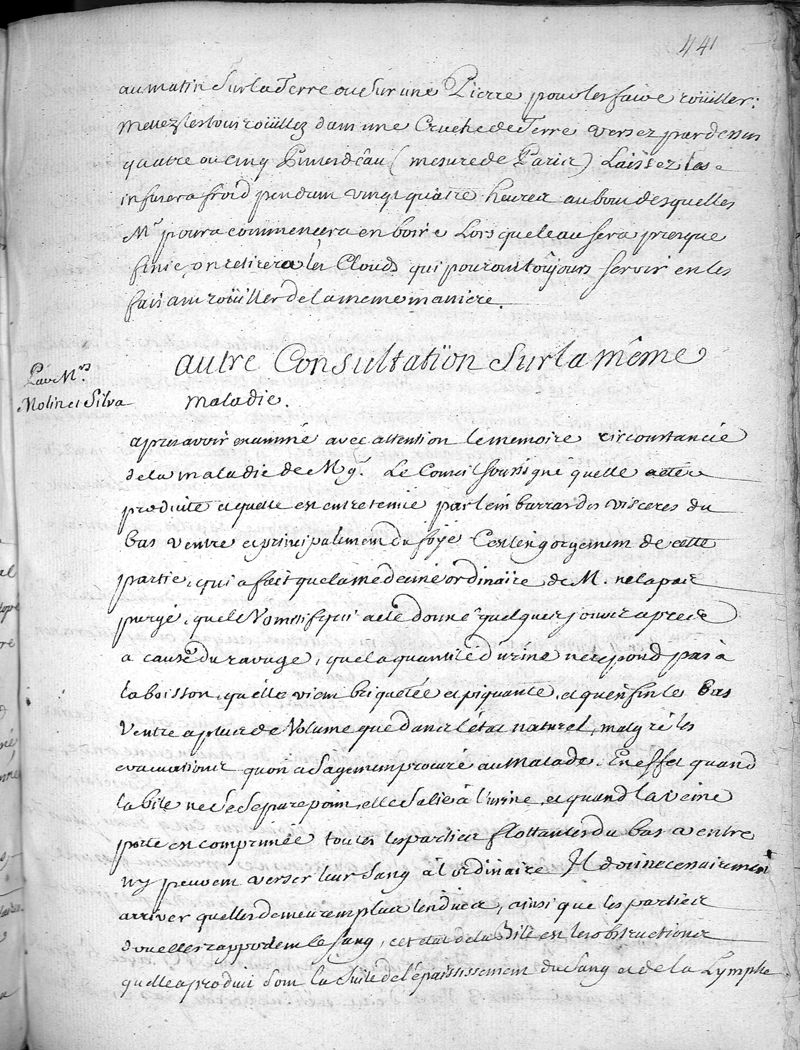 441
au matin Sur la Terre ou Sur une Pierre pour les faire roüiller:
Mettez les tous roüillez dans une Cruche de Terre versez par dessus
quatre ou cinq Pintes d'eau (mesure de Paris) Laissez les
infuser a froid pendant vingt quatre heures au bout desquelles
Mr poura commencer a en boire Lors que leau sera presque
finie, on retirera les Clouds qui pouront toûjours servir en les
faisant roüiller de la meme maniere.
autre Consultation Sur la même
Par Mrs
Molin et Silva
maladie.
apres avoir examiné avec attention le memoire circonstancié
de la maladie de M Le Conseil soussigné quelle a eté
produite et quelle est entretenüe par lembarras des visceres du
bas ventre et principalement du foye C'est lengorgement de cette
partie, qui a fait que la medecine ordinaire de M. ne la pas
purgé, que le Vomitif qui a eté donné quelques jours apres a
a causé du ravage, que la quantité d'urine ne repond pas à
la boisson, qu'elle vient briquetée et piquante, et qu'enfin le bas
Ventre a plus de Volume que dans l'état naturel, malgré les
evacuations qu'on a Sagement procuré au Malade. En effet quand
la bile ne Se Separe point, elle Se lie à l'urine, et quand la veine
porte est comprimée toutes les parties flottantes du bas ventre
n'y peuvent verser leur Sang à l'ordinaire Il doit necessairement
arriver quelles demeurent plus tendües, ainsi que les parties
d'ou elles rapportent le Sang, cet état de la Bile et les obstructions
quelle a produit sont la Suite de l'épaississement du Sang et de la Lymphe